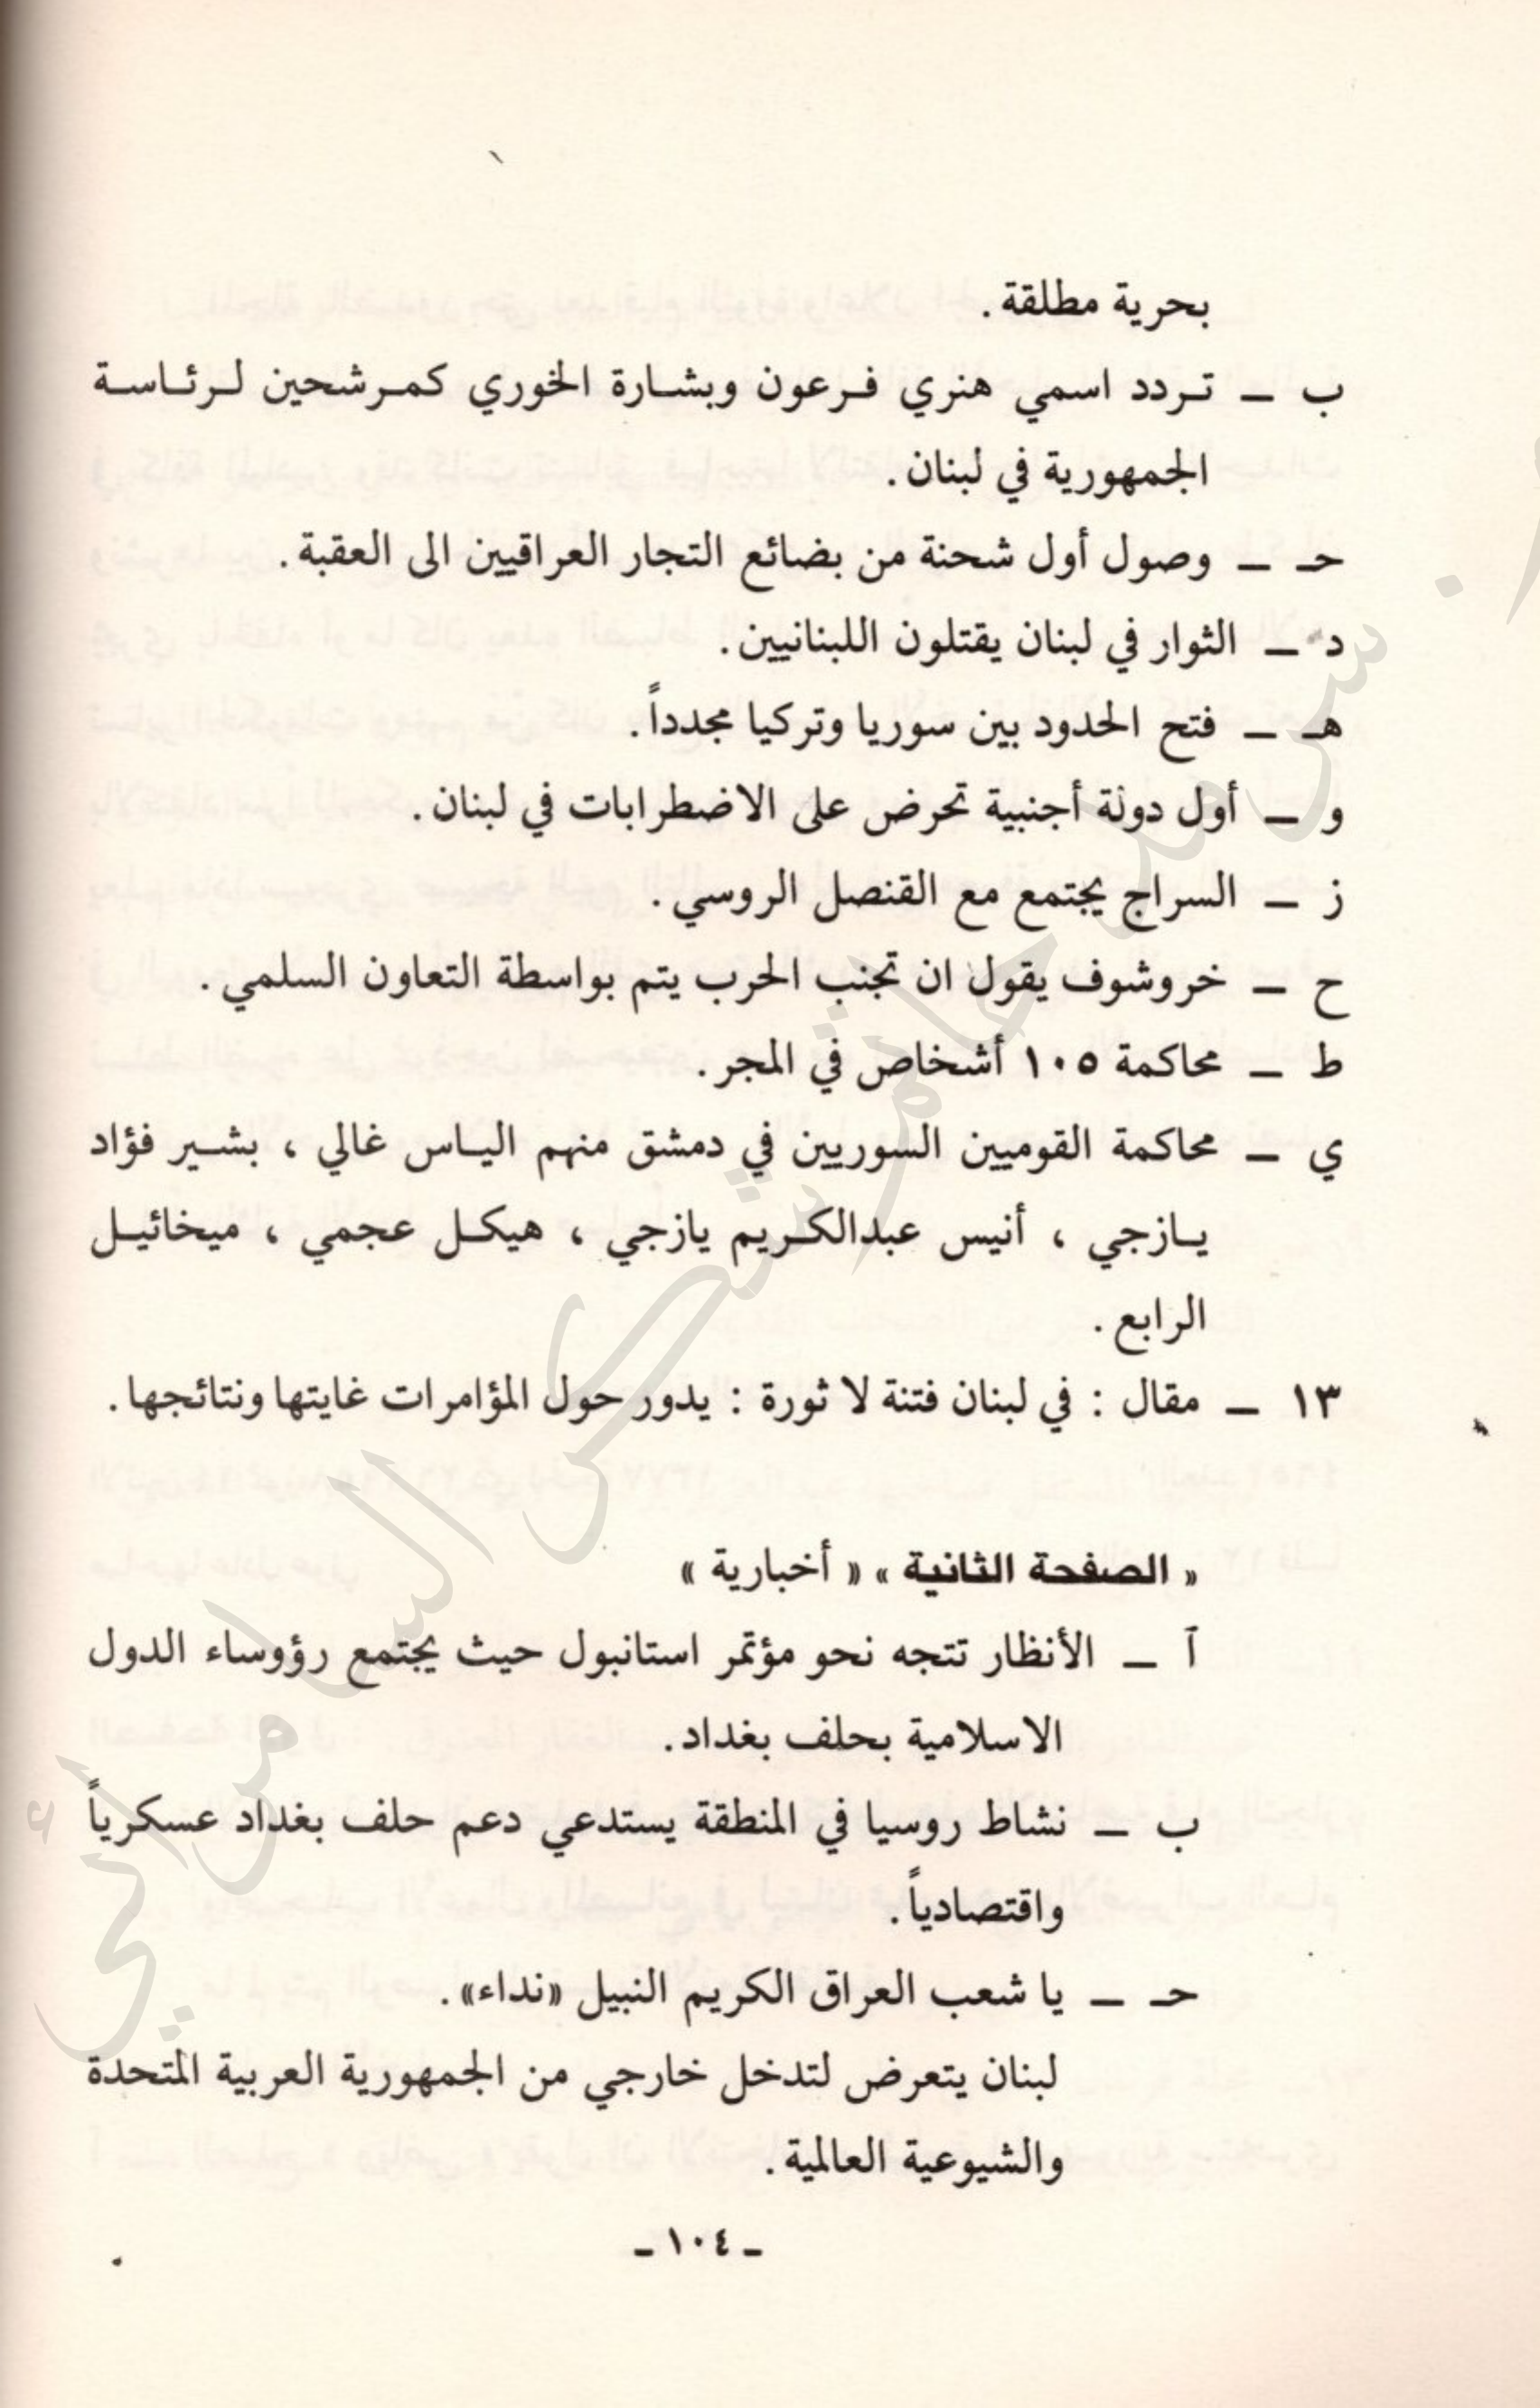 بحرية مطلقة .
ب ـ تردد اسمي هنري فرعون وبشارة الخوري كمرشحين لرئاسة
الجمهورية في لبنان .
حـ ـ وصول أول شحنة من بضائع التجار العراقيين الى العقبة .
د ـ الثوار في لبنان يقتلون اللبنانيين .
هـ ـ فتح الحدود بين سوريا وتركيا مجدداً .
و ـ أول دولة أجنبية تحرض على الاضطرابات في لبنان .
ز ـ السراج يجتمع مع القنصل الروسي .
ح ـ خروشوف يقول ان تجنب الحرب يتم بواسطة التعاون السلمي .
ط ـ محاكمة ١٠٥ أشخاص في المجر .
ي ـ محاكمة القوميين السوريين في دمشق منهم الياس غالي ، بشير فؤاد
يازجي ، أنيس عبدالكريم يازجي ، هيكل عجمي ، ميخائيل
الرابع .
١٣ ـ مقال : في لبنان فتنة لا ثورة : يدور حول المؤامرات غايتها ونتائجها .
« الصفحة الثانية » « أخبارية »
آ ـ الأنظار تتجه نحو مؤتمر استانبول حيث يجتمع رؤوساء الدول
الاسلامية بحلف بغداد .
ب ـ نشاط روسيا في المنطقة يستدعي دعم حلف بغداد عسكرياً
واقتصادياً .
حـ ـ يا شعب العراق الكريم النبيل «نداء» .
لبنان يتعرض لتدخل خارجي من الجمهورية العربية المتحدة
والشيوعية العالمية .
ـ ١٠٤ ـ